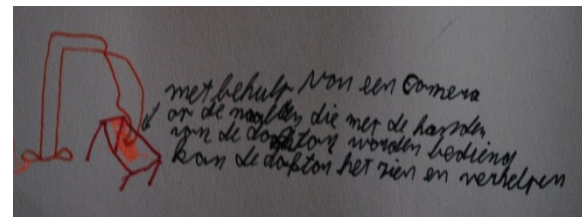 met behulp van een camera
op de naalden die met de handen
van de dokton worden bediend
kan de dokton het zien en verhelpen